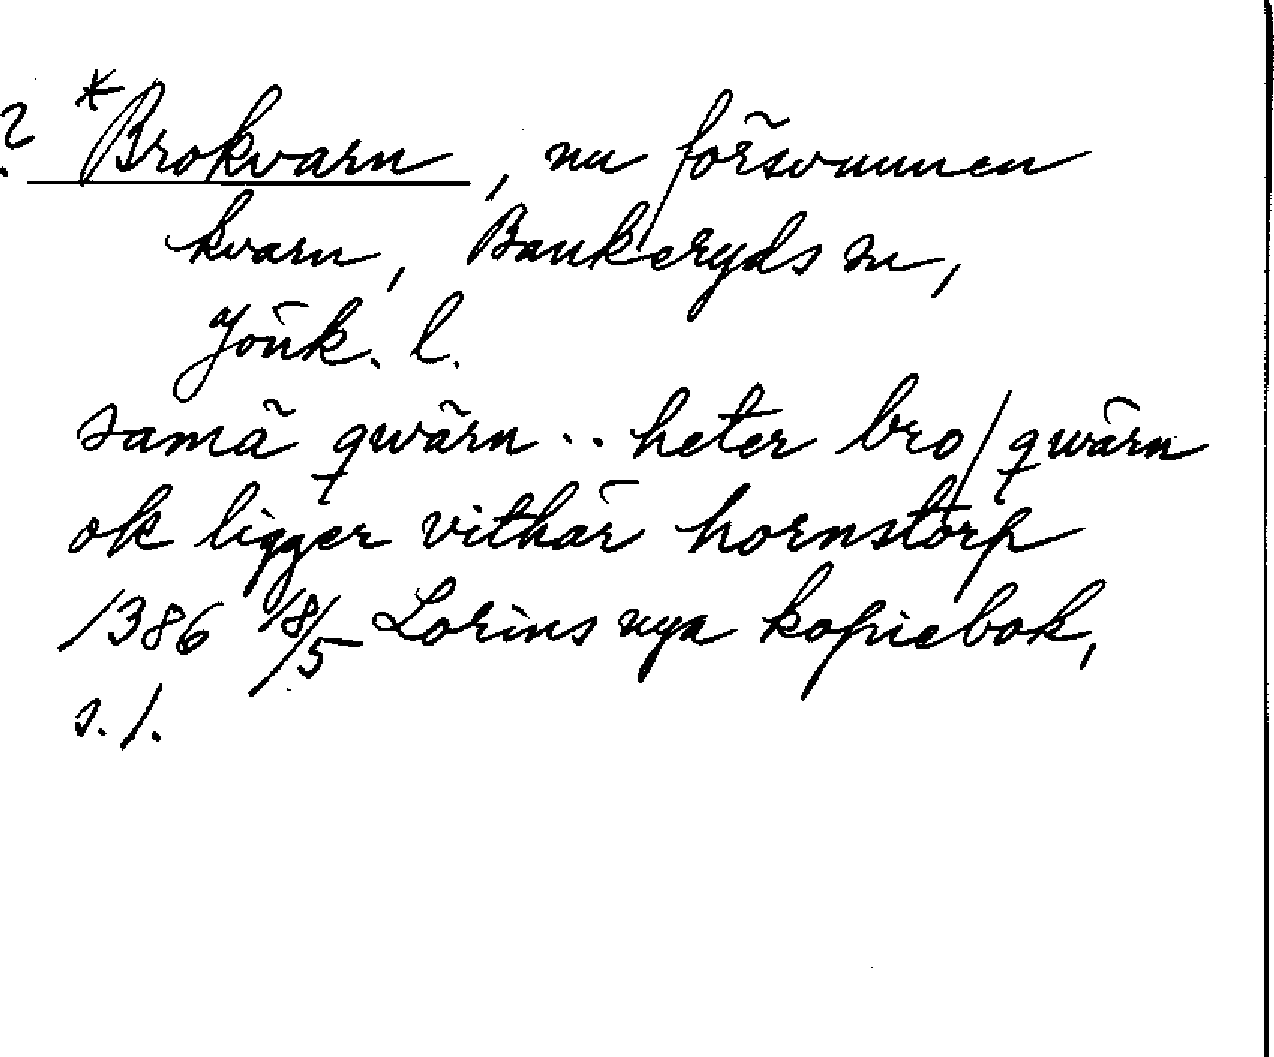 ? *Brokvarn, nu försvunnen
kvarn, Bankeryds sn,
Jönk. l.
samä qwärn .. heter bro/qwärn
ok ligger vithär hornstorp
1386 18/5 Lorins nya kopiebok,
s. 1.